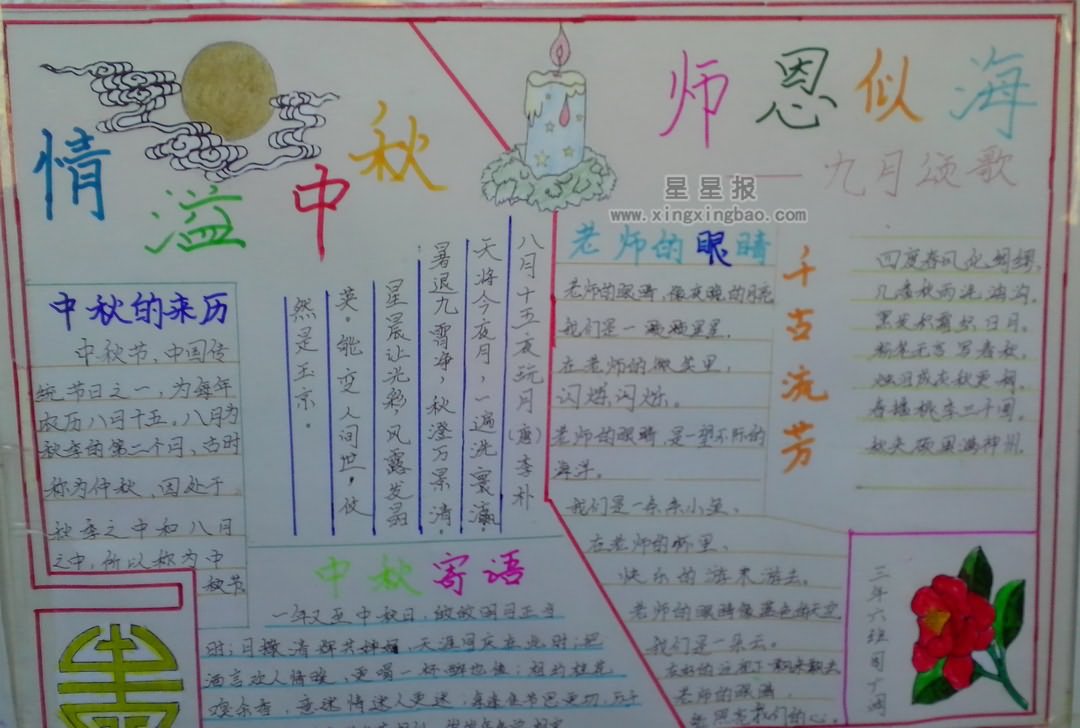 情溢中秋
师恩似海
—九月颂歌
星星报
www.xingxingbao.com
中秋的来历
中秋节，中国传
统节日之一，为每年
农历八月十五，八月为
秋季的第二个月，古时
称为仲秋，因处于
秋季之中和八月
之中，所以称为中
秋节
八月十五夜玩月（唐）李朴
天将今夜月，一遍洗寰瀛。
暑退九霄净，秋澄万景清。
星辰让光彩，风露发晶
英。能变人间世，攸
然是玉京。
中秋寄语
一年又至中秋日，皎皎明月正当
时；月撒清辉共婵娟，天涯同庆在此时；把
酒言欢人情暖，更喝一杯醉也值；相约桂花
老师的眼睛
老师的眼睛，像夜晚的月亮
我们是一颗颗星星，
在老师的微笑里，
闪烁闪烁。
老师的眼睛，是一望不际的
海洋。
我们是一条条小鱼，
在老师的怀里，
快乐的游来游去。
老师的眼睛像蓝色的天空
我们是一朵云。
老师的眼睛，
千古流芳
四度春风化绸缪，
几番秋雨洗鸿沟。
黑发积霜织日月，
粉笔无言写春秋。
蚕播桃李三千圃，
三年六班周丁润